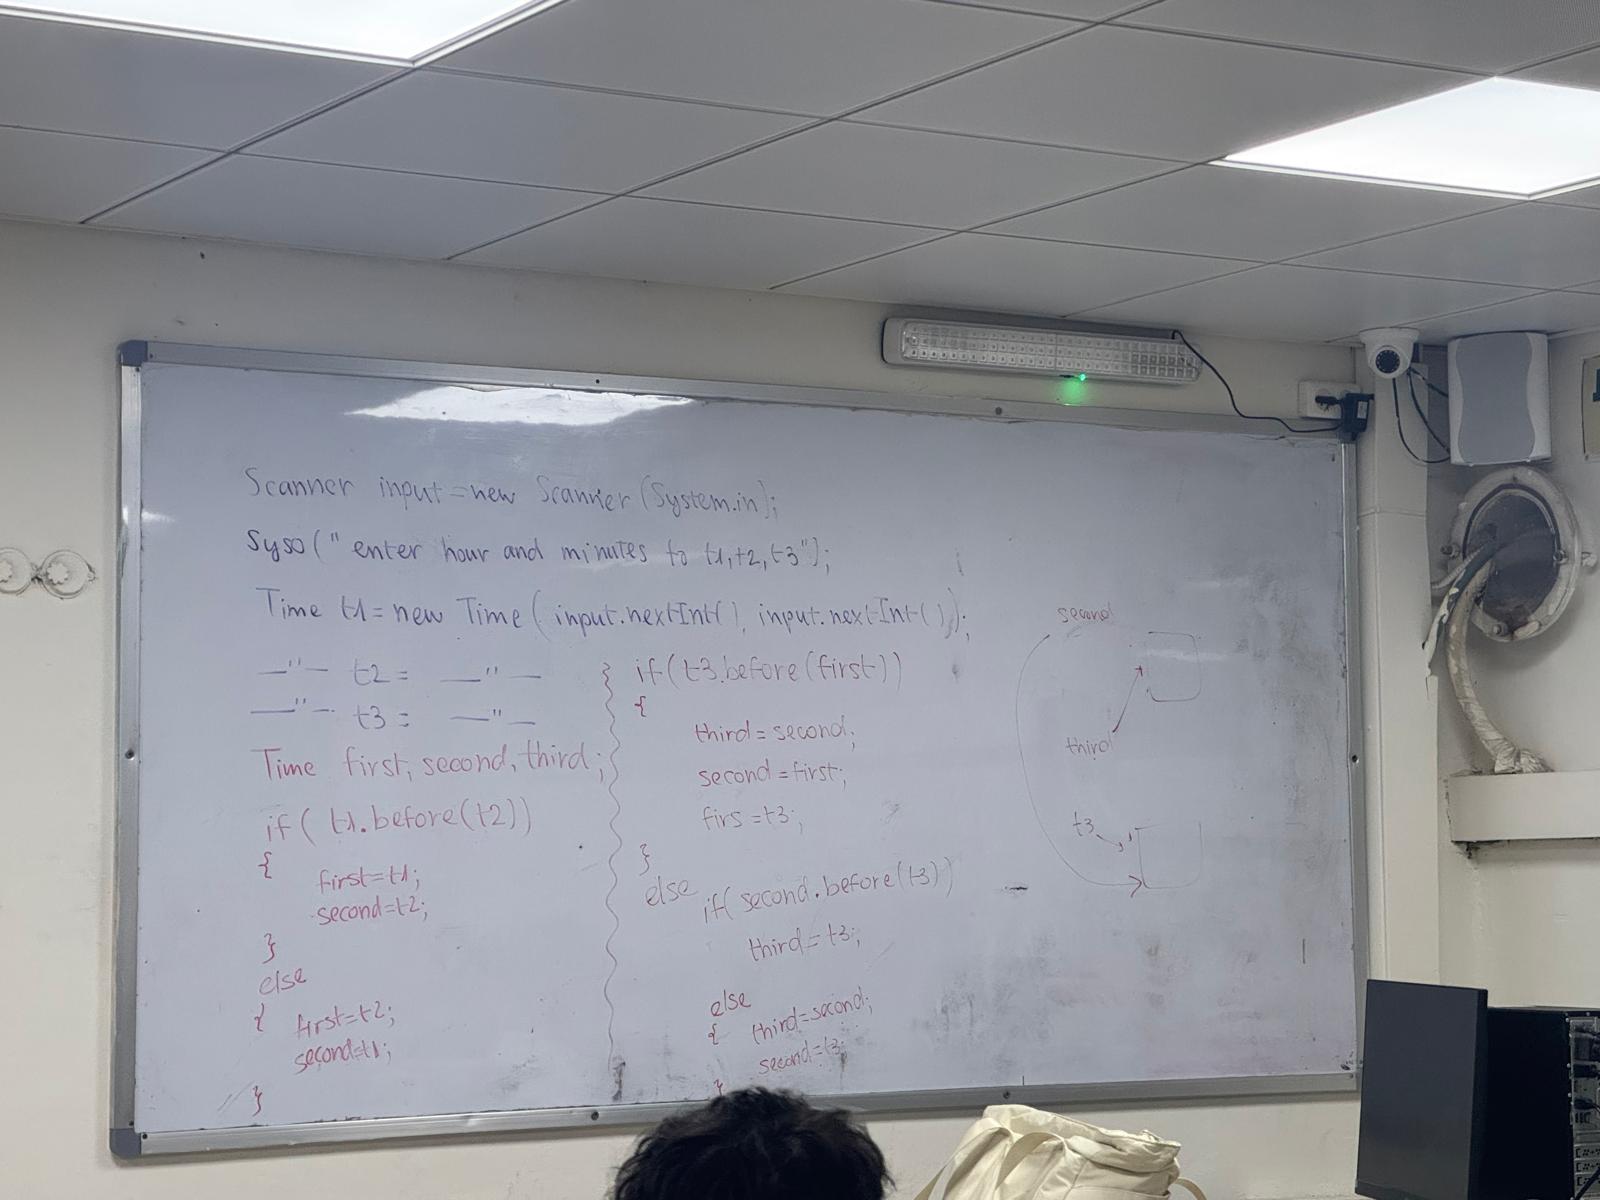 Scanner input = new Scanner (System.in);
Syso (" enter hour and minutes to t1, t2, t3");
Time t1 = new Time ( input.nextInt(), input.nextInt() );
—"— t2 = —"—
—"— t3 = —"—
Time first, second, third;
if ( t1.before(t2))
{
first=t1;
second=t2;
}
else
{ first=t2;
second=t1;
}
if (t3.before (first))
{
third = second;
second = first;
firs = t3;
}
else if( second.before(t3))
third = t3;
else
{ third=second;
second=t3;
}
second
third
t3